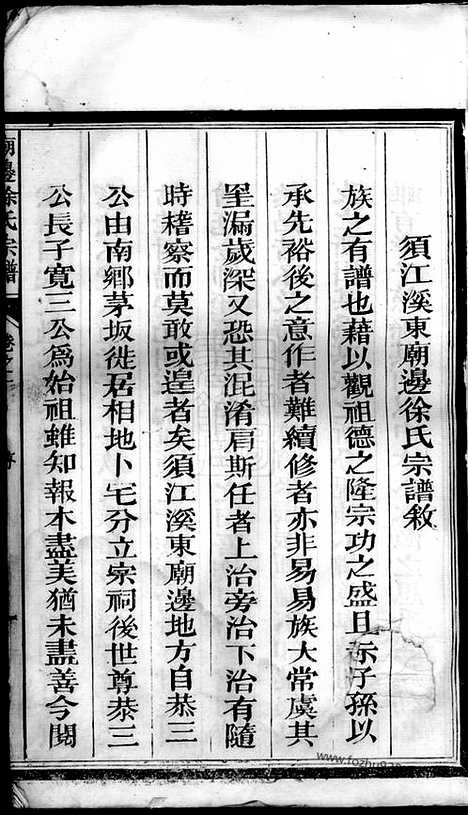 須江溪東廟邊徐氏宗譜敘
族之有譜也藉以觀祖德之隆宗功之盛且示子孫以
承先裕後之意作者難續修者亦非易易族大常虞其
罣漏歲深又恐其混淆肩斯任者上治旁治下治有隨
時稽察而莫敢或遑者矣須江溪東廟邊地方自恭三
公由南鄉茅坂徙居相地卜宅分立宗祠後世尊恭三
公長子寛三公爲始祖雖知報本盡美猶未盡善今閱
廟邊徐氏宗譜
卷之一
序